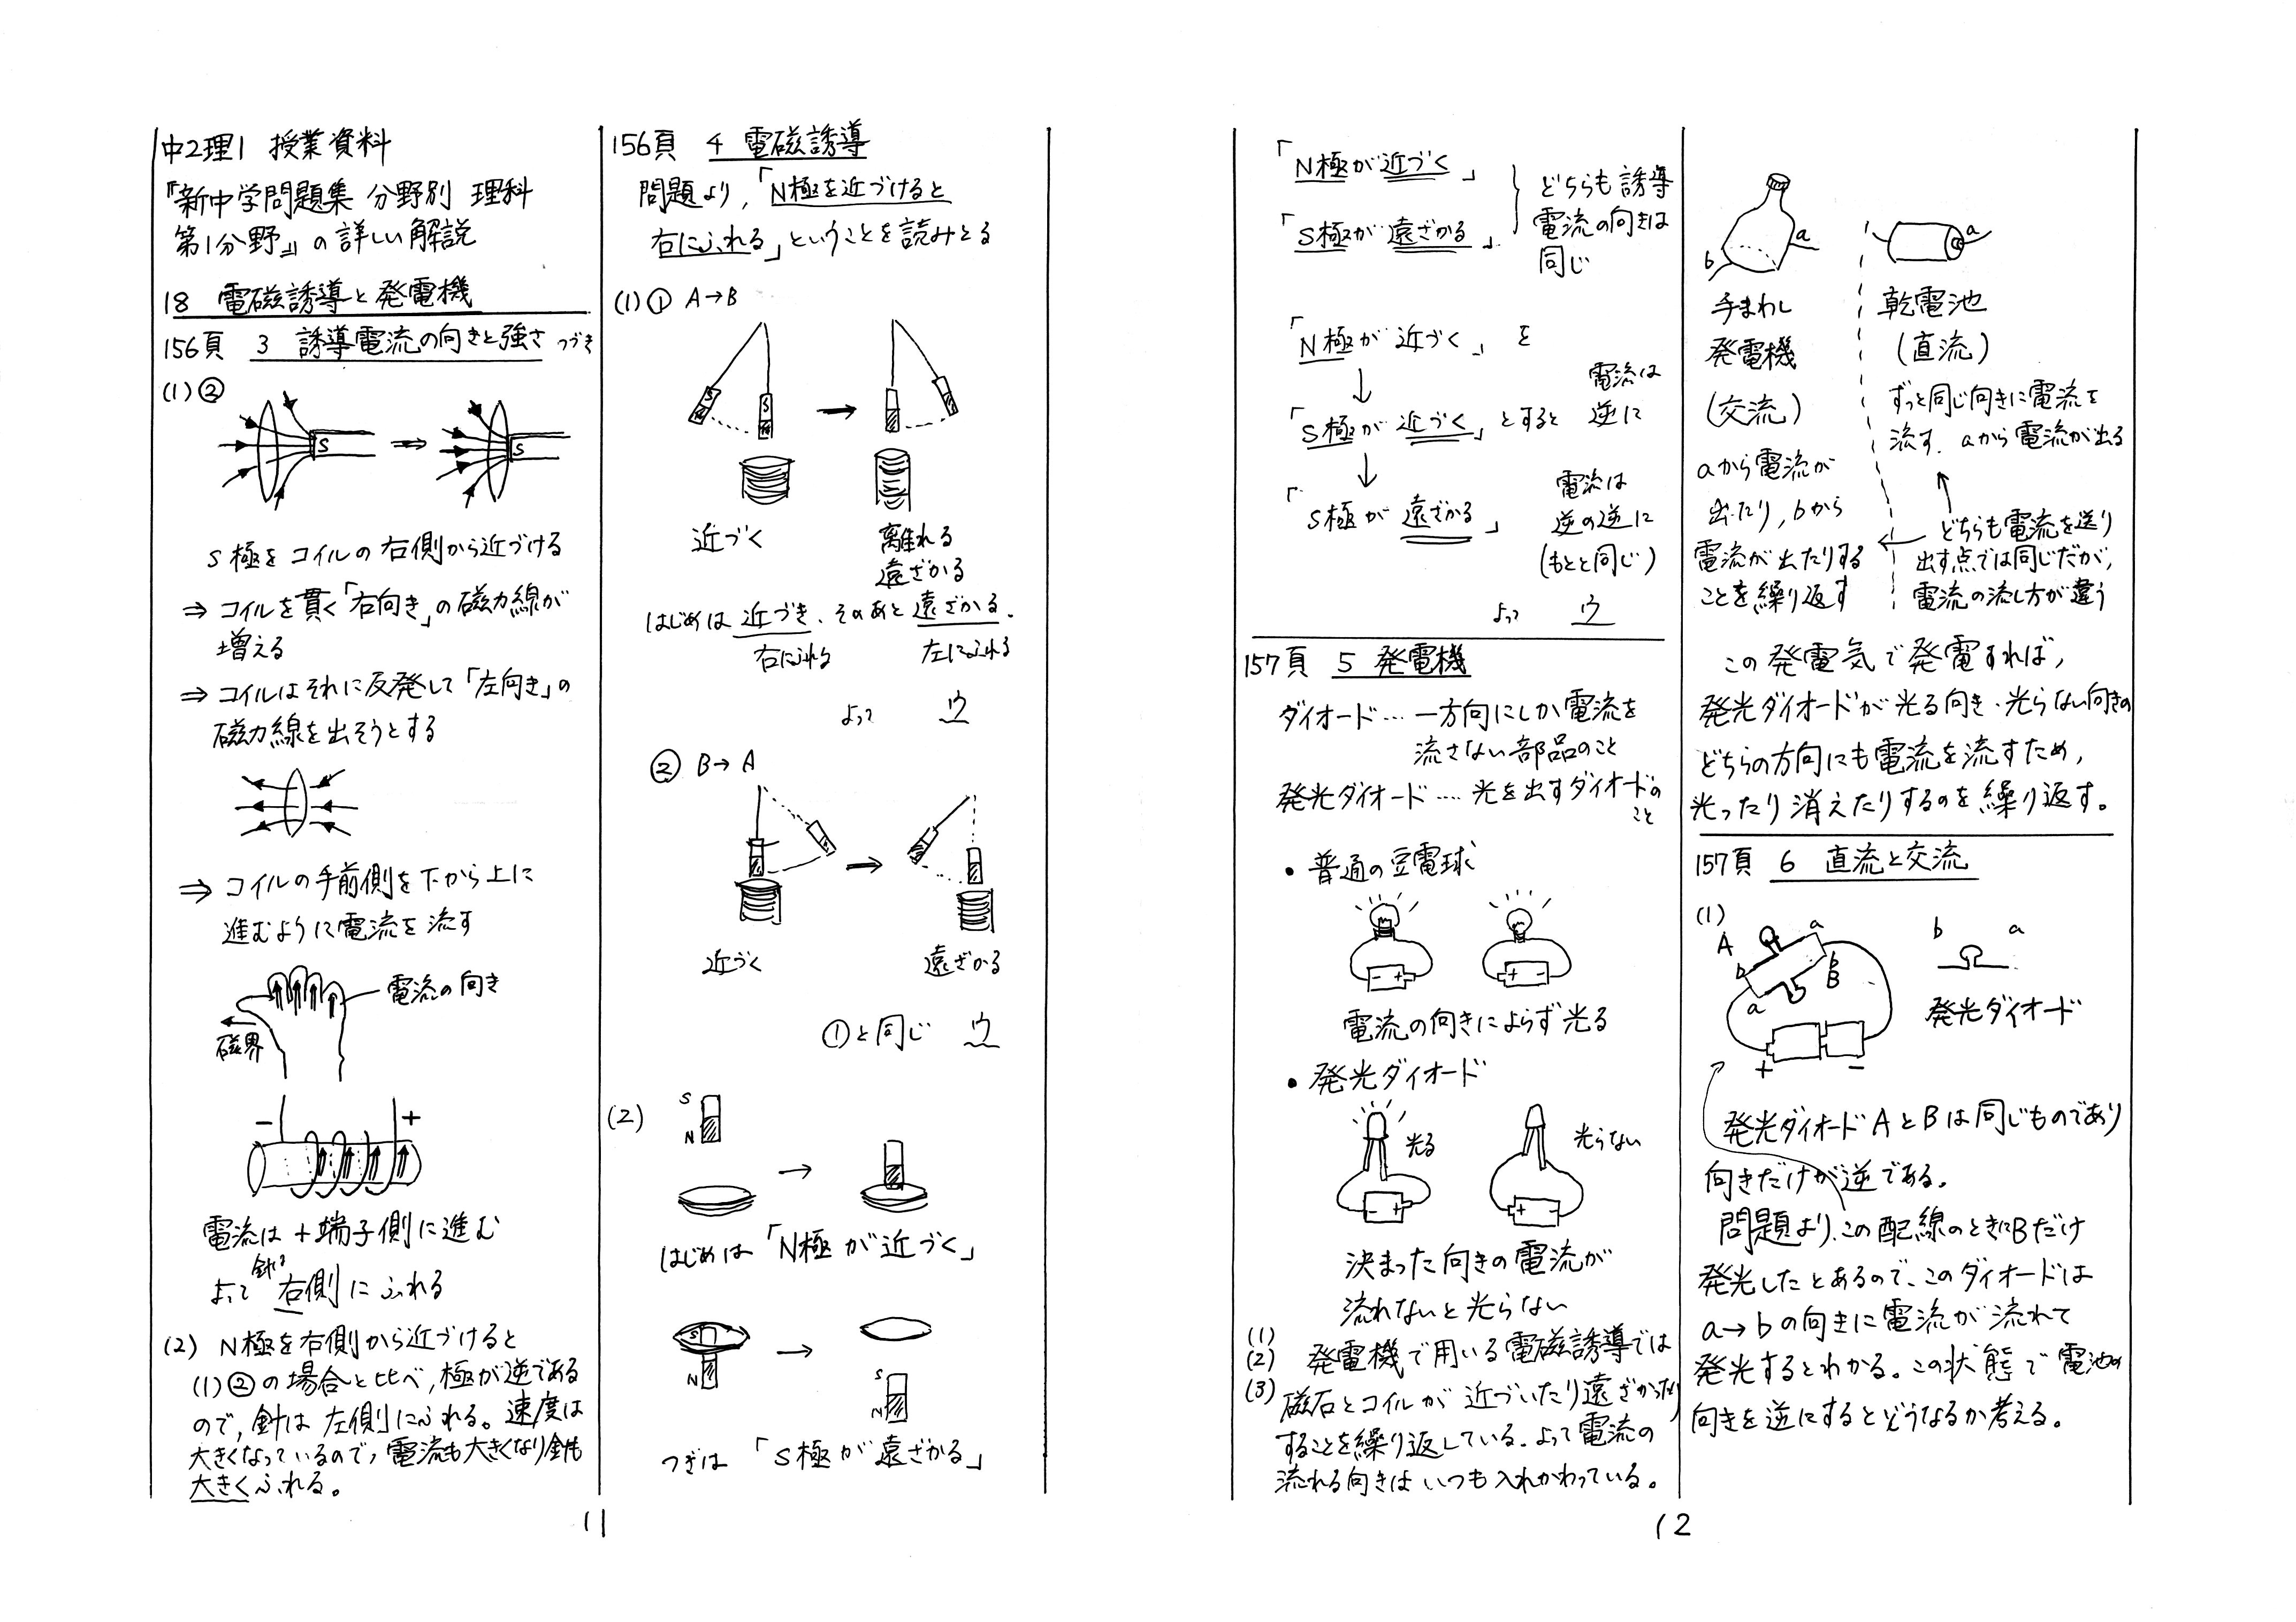 中2理1 授業資料
『新中学問題集 分野別 理科
第1分野』の詳しい解説
18 電磁誘導と発電機
156頁 3 誘導電流の向きと強さ つづき
(1)②
S
S
S極をコイルの右側から近づける
⇒ コイルを貫く「右向き」の磁力線が
増える
⇒ コイルはそれに反発して「左向き」の
磁力線を出そうとする
⇒ コイルの手前側を下から上に
進むように電流を流す
電流の向き
磁界
− +
電流は+端子側に進む
針は
よって 右側にふれる
(2) N極を右側から近づけると
(1)②の場合と比べ,極が逆である
ので,針は左側にふれる。速度は
大きくなっているので,電流も大きくなり針も
大きくふれる。
11
156頁 4 電磁誘導
問題より,「N極を近づけると
右にふれる」ということを読みとる
(1)① A→B
S
S
近づく
離れる
遠ざかる
はじめは近づき、そのあと遠ざかる.
右にふれる 左にふれる
よって ウ
② B→A
近づく 遠ざかる
①と同じ ウ
(2)
S
N
はじめは「N極が近づく」
S
N
S
N
つぎは「S極が遠ざかる」
「N極が近づく」
「S極が遠ざかる」
どちらも誘導
電流の向きは
同じ
「N極が近づく」を
↓
電流は
逆に
「S極が近づく」とすると
↓
電流は
逆の逆に
(もとと同じ)
「S極が遠ざかる」
よって ウ
157頁 5 発電機
ダイオード…一方向にしか電流を
流さない部品のこと
発光ダイオード…. 光を出すダイオードの
こと
• 普通の豆電球
− +
+ −
電流の向きによらず光る
• 発光ダイオード
光る
光らない
− +
+ −
決まった向きの電流が
流れないと光らない
(1)
(2) 発電機で用いる電磁誘導では
(3) 磁石とコイルが近づいたり遠ざかったり
することを繰り返している. よって電流の
流れる向きはいつも入れかわっている。
12
a
b
手まわし
発電機
(交流)
aから電流が
出たり,bから
電流が出たりする
ことを繰り返す
a
乾電池
(直流)
ずっと同じ向きに電流を
流す. aから電流が出る
どちらも電流を送り
出す点では同じだが,
電流の流し方が違う
この発電気で発電すれば,
発光ダイオードが光る向き・光らない向きの
どちらの方向にも電流を流すため,
光ったり消えたりするのを繰り返す。
157頁 6 直流と交流
(1)
A
a
b
b
B
a
+ −
b a
発光ダイオード
発光ダイオードAとBは同じものであり
向きだけが逆である.
問題より、この配線のときにBだけ
発光したとあるので、このダイオードは
a→bの向きに電流が流れて
発光するとわかる。この状態で電池の
向きを逆にするとどうなるか考える。